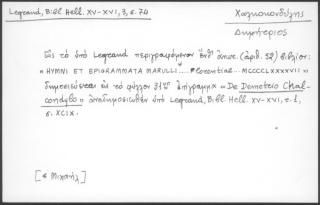 Legrand, Bibl. Hell. XV-XVI, 3, σ. 74
Χαλκοκονδύλης
Δημήτριος
Εἰς τὸ ὑπὸ Legrand περιγραφόμενον ἔνθ' ἀνωτ. (ἀριθ. 52) βιβλίον:
« HYMNI ET EPIGRAMMATA MARULLI .... Florentiae ... MCCCCLXXXXVII »
δημοσιεύεται εἰς τὸ φύλλον 31 ἐπίγραμμα « De Demetrio Chal-
condylo » ἀναδημοσιευθὲν ὑπὸ Legrand, Bibl. Hell. XV-XVI, τ. 1,
σ. XCIX.
[ Μιχαήλ ]